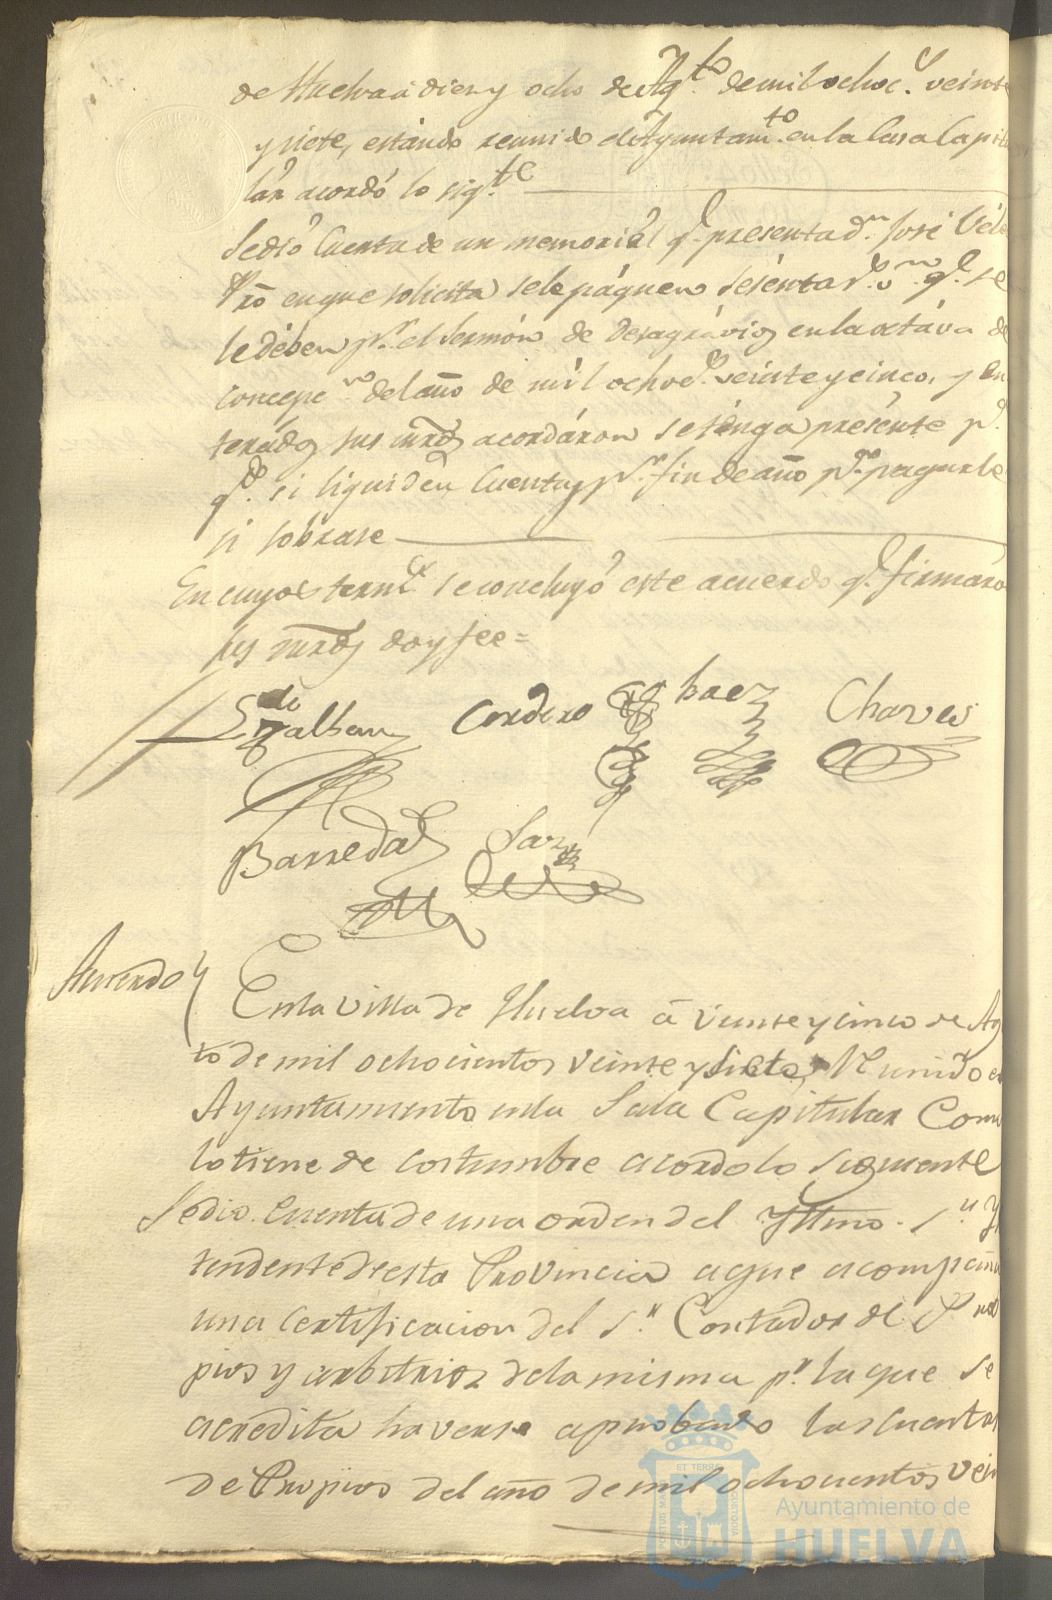 de Huelva à diez y ocho de Ag.to de mil ochoc.s veinte
y siete, estando reunido el Ayuntam.to en la Casa Capitu
lar acordó lo sig.te
Se dió Cuenta de un memorial q.e presenta d.n José Véle
Pro en que solicita se le páguen sesénta r.s v.n q.e se
le dében p.r el Sermón de desagrávios en la octáva de
Concepc.on del año de mil ochoc.s veinte y cinco, y en
terados sus mrds acordáron se ténga presénte p.a
q.do se liquiden Cuentas p.r fin de año p.a pagarle
si sobrase
En cuyos term.s se concluyó este acuerdo q.e firmáro
sus mrds doy fee =
Cordero
Chaves
Barreda
Acuerdo
En la Villa de Huelva à veinte y cinco de Ag
to de mil ochocientos veinte y siete, Reunido el
Ayuntamiento en la Sala Capitular Como
lo tiene de costumbre acordo lo siguiente
Se dio Cuenta de una orden del Yltmo. S.or Yn
tendente de esta Provincia a que acompaña
una Certificacion del S.r Contador de Pro
pios y arbitrios de la misma p.r la que se
acredita haverse aprobado las Cuentas
de Propios del año de mil ochocientos vein
ET TERRÆ
PORTUS MARIS
CUSTODIA
Ayuntamiento de
HUELVA